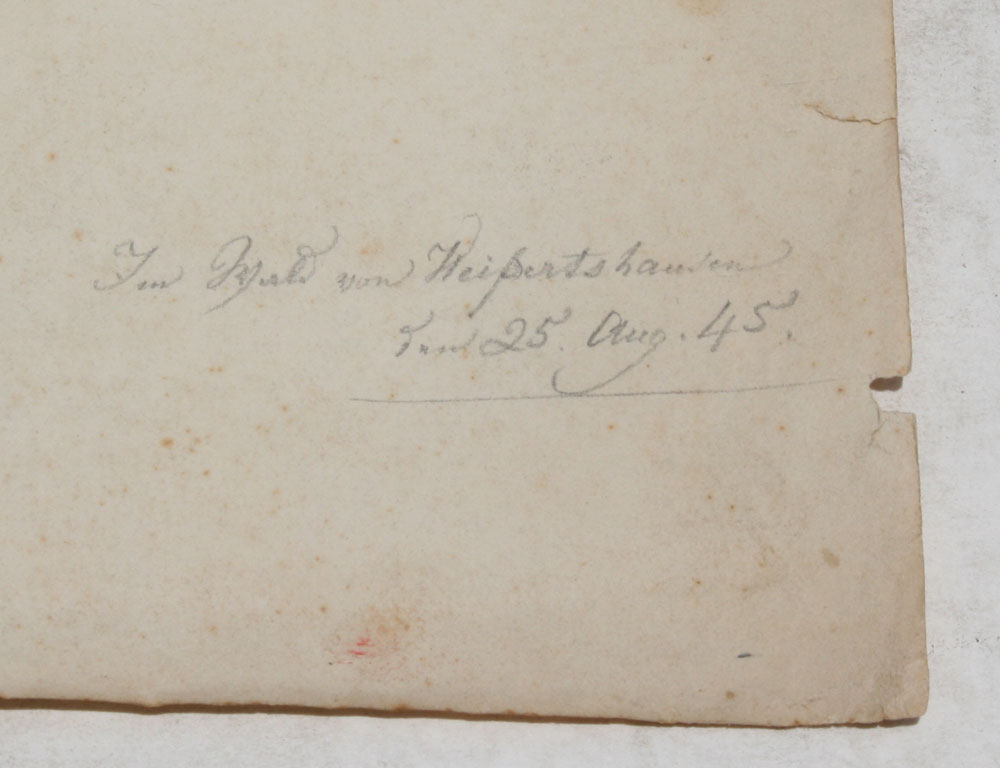 Im Wald von Weipertshausen
den 25. Aug. 45.